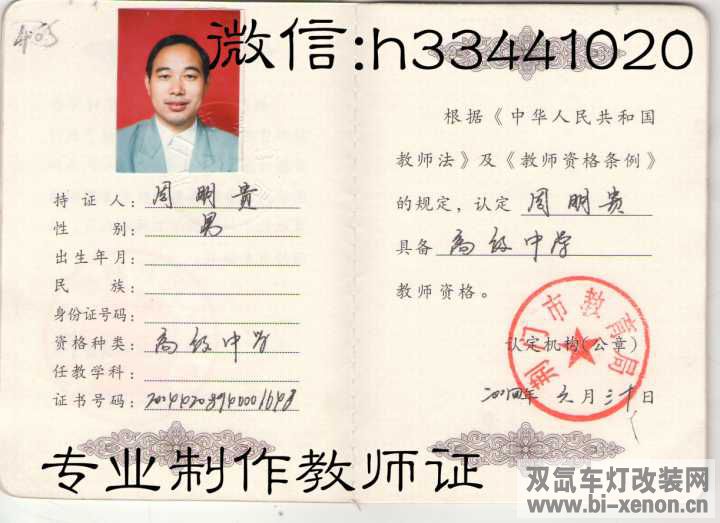 微信:h33441020
持证人:周明贵
性别:男
出生年月:
民族:
身份证号码:
资格种类:高级中学
任教学科:
证书号码:
根据《中华人民共和国
教师法》及《教师资格条例》
的规定,认定周明贵
具备高级中学
教师资格。
荆门市教育局
认定机构(公章)
六月三十日
专业制作教师证
双氙车灯改装网
www.bi-xenon.cn